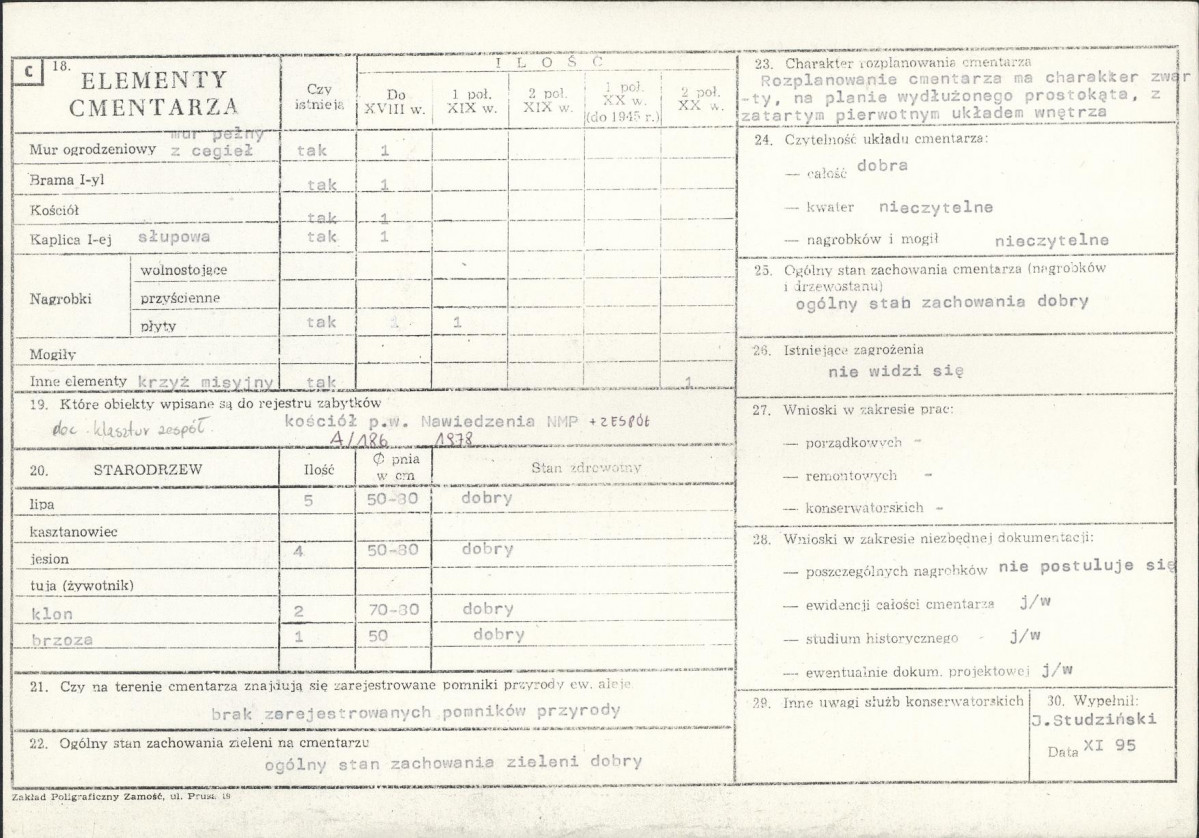 C 18. ELEMENTY CMENTARZA
Czy istnieją
ILOŚĆ
Do XVIII w.
1 poł. XIX w.
2 poł. XIX w.
1 poł. XX w. (do 1945 r.)
2 poł. XX w.
mur pełny
Mur ogrodzeniowy z cegieł tak 1
Brama I-yl tak 1
Kościół tak 1
Kaplica I-ej słupowa tak 1
Nagrobki
wolnostojące
przyścienne
płyty tak 1 1
Mogiły
Inne elementy krzyż misyjny tak 1
19. Które obiekty wpisane są do rejestru zabytków
kościół p.w. Nawiedzenia NMP + ZESPÓŁ
doc. klasztor zespół.
A/186 1978
20. STARODRZEW Ilość Ø pnia w cm Stan zdrowotny
lipa 5 50-80 dobry
kasztanowiec
jesion 4 50-80 dobry
tuja (żywotnik)
klon 2 70-80 dobry
brzoza 1 50 dobry
21. Czy na terenie cmentarza znajdują się zarejestrowane pomniki przyrody ew. aleje
brak zarejestrowanych pomników przyrody
22. Ogólny stan zachowania zieleni na cmentarzu
ogólny stan zachowania zieleni dobry
23. Charakter rozplanowania cmentarza
Rozplanowanie cmentarza ma charakter zwar
-ty, na planie wydłużonego prostokąta, z
zatartym pierwotnym układem wnętrza
24. Czytelność układu cmentarza:
— całość dobra
— kwater nieczytelne
— nagrobków i mogił nieczytelne
25. Ogólny stan zachowania cmentarza (nagrobków
i drzewostanu)
ogólny stan zachowania dobry
26. Istniejące zagrożenia
nie widzi się
27. Wnioski w zakresie prac:
— porządkowych -
— remontowych -
— konserwatorskich -
28. Wnioski w zakresie niezbędnej dokumentacji:
— poszczególnych nagrobków nie postuluje się
— ewidencji całości cmentarza j/w
— studium historycznego - j/w
— ewentualnie dokum. projektowej j/w
29. Inne uwagi służb konserwatorskich
30. Wypełnił:
J.Studziński
Data XI 95
Zakład Poligraficzny Zamość, ul. Prusa 18